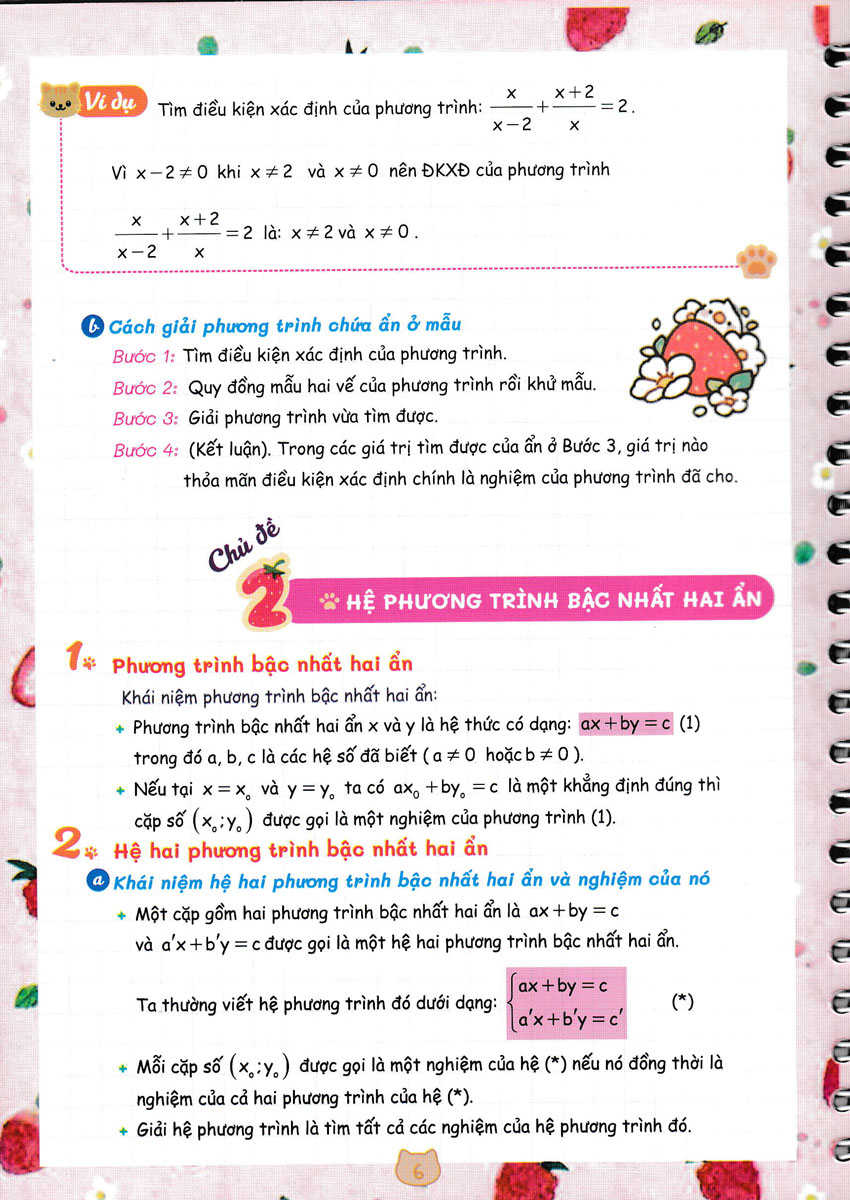 Ví dụ Tìm điều kiện xác định của phương trình: x/(x−2) + (x+2)/x = 2.
Vì x−2 ≠ 0 khi x ≠ 2 và x ≠ 0 nên ĐKXĐ của phương trình
x/(x−2) + (x+2)/x = 2 là: x ≠ 2 và x ≠ 0.
b Cách giải phương trình chứa ẩn ở mẫu
Bước 1: Tìm điều kiện xác định của phương trình.
Bước 2: Quy đồng mẫu hai vế của phương trình rồi khử mẫu.
Bước 3: Giải phương trình vừa tìm được.
Bước 4: (Kết luận). Trong các giá trị tìm được của ẩn ở Bước 3, giá trị nào
thỏa mãn điều kiện xác định chính là nghiệm của phương trình đã cho.
Chủ đề
2 HỆ PHƯƠNG TRÌNH BẬC NHẤT HAI ẨN
1 Phương trình bậc nhất hai ẩn
Khái niệm phương trình bậc nhất hai ẩn:
+ Phương trình bậc nhất hai ẩn x và y là hệ thức có dạng: ax+by = c (1)
trong đó a, b, c là các hệ số đã biết (a ≠ 0 hoặc b ≠ 0).
+ Nếu tại x = x₀ và y = y₀ ta có ax₀ + by₀ = c là một khẳng định đúng thì
cặp số (x₀; y₀) được gọi là một nghiệm của phương trình (1).
2 Hệ hai phương trình bậc nhất hai ẩn
a Khái niệm hệ hai phương trình bậc nhất hai ẩn và nghiệm của nó
+ Một cặp gồm hai phương trình bậc nhất hai ẩn là ax+by = c
và a′x+b′y = c được gọi là một hệ hai phương trình bậc nhất hai ẩn.
Ta thường viết hệ phương trình đó dưới dạng: { ax+by = c
a′x+b′y = c′ (*)
+ Mỗi cặp số (x₀; y₀) được gọi là một nghiệm của hệ (*) nếu nó đồng thời là
nghiệm của cả hai phương trình của hệ (*).
+ Giải hệ phương trình là tìm tất cả các nghiệm của hệ phương trình đó.
6